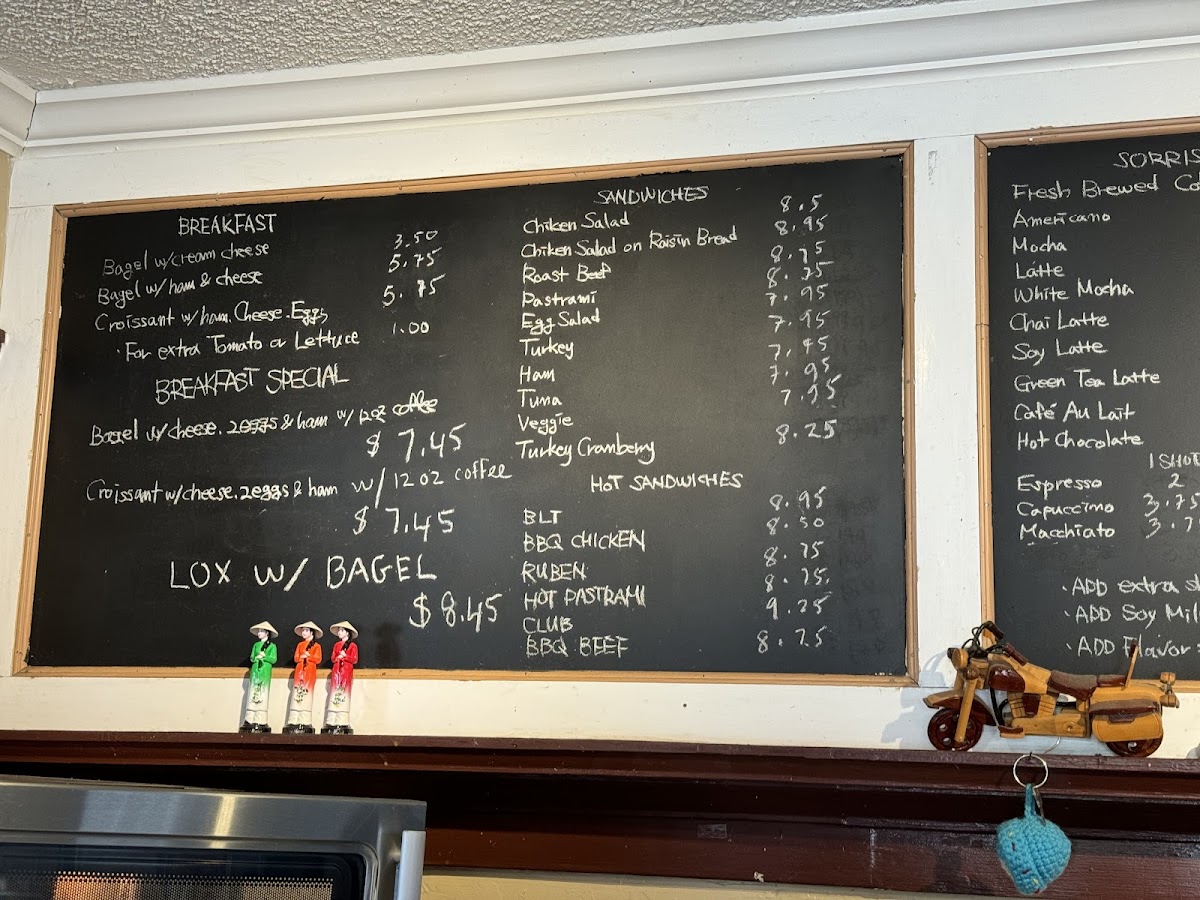 BREAKFAST
Bagel w/cream cheese 3.50
Bagel w/ ham & cheese 5.75
Croissant w/ham.Cheese.Eggs 5.75
·For extra Tomato or Lettuce 1.00
BREAKFAST SPECIAL
Bagel w/cheese.2eggs & ham w/ 12oz coffee
$ 7.45
Croissant w/cheese.2eggs & ham w/ 12 oz coffee
$ 7.45
LOX W/ BAGEL
$ 8.45
SANDWICHES
Chiken Salad 8.5
Chiken Salad on Raisin Bread 8.95
Roast Beef 8.75
Pastrami 8.75
Egg Salad 7.95
Turkey 7.95
Ham 7.95
Tuna 7.95
Veggie 7.95
Turkey Cranberry 8.25
HOT SANDWICHES
BLT 8.95
BBQ CHICKEN 8.50
RUBEN 8.75
HOT PASTRAMI 8.75
CLUB 9.25
BBQ BEEF 8.75
SORRIS
Fresh Brewed
Americano
Mocha
Latte
White Mocha
Chai Latte
Soy Latte
Green Tea Latte
Café Au Lait
Hot Chocolate
1 SHOT
Espresso 2
Capuccimo 3.75
Macchiato 3.7
·ADD extra
·ADD Soy Mil
·ADD Flavor